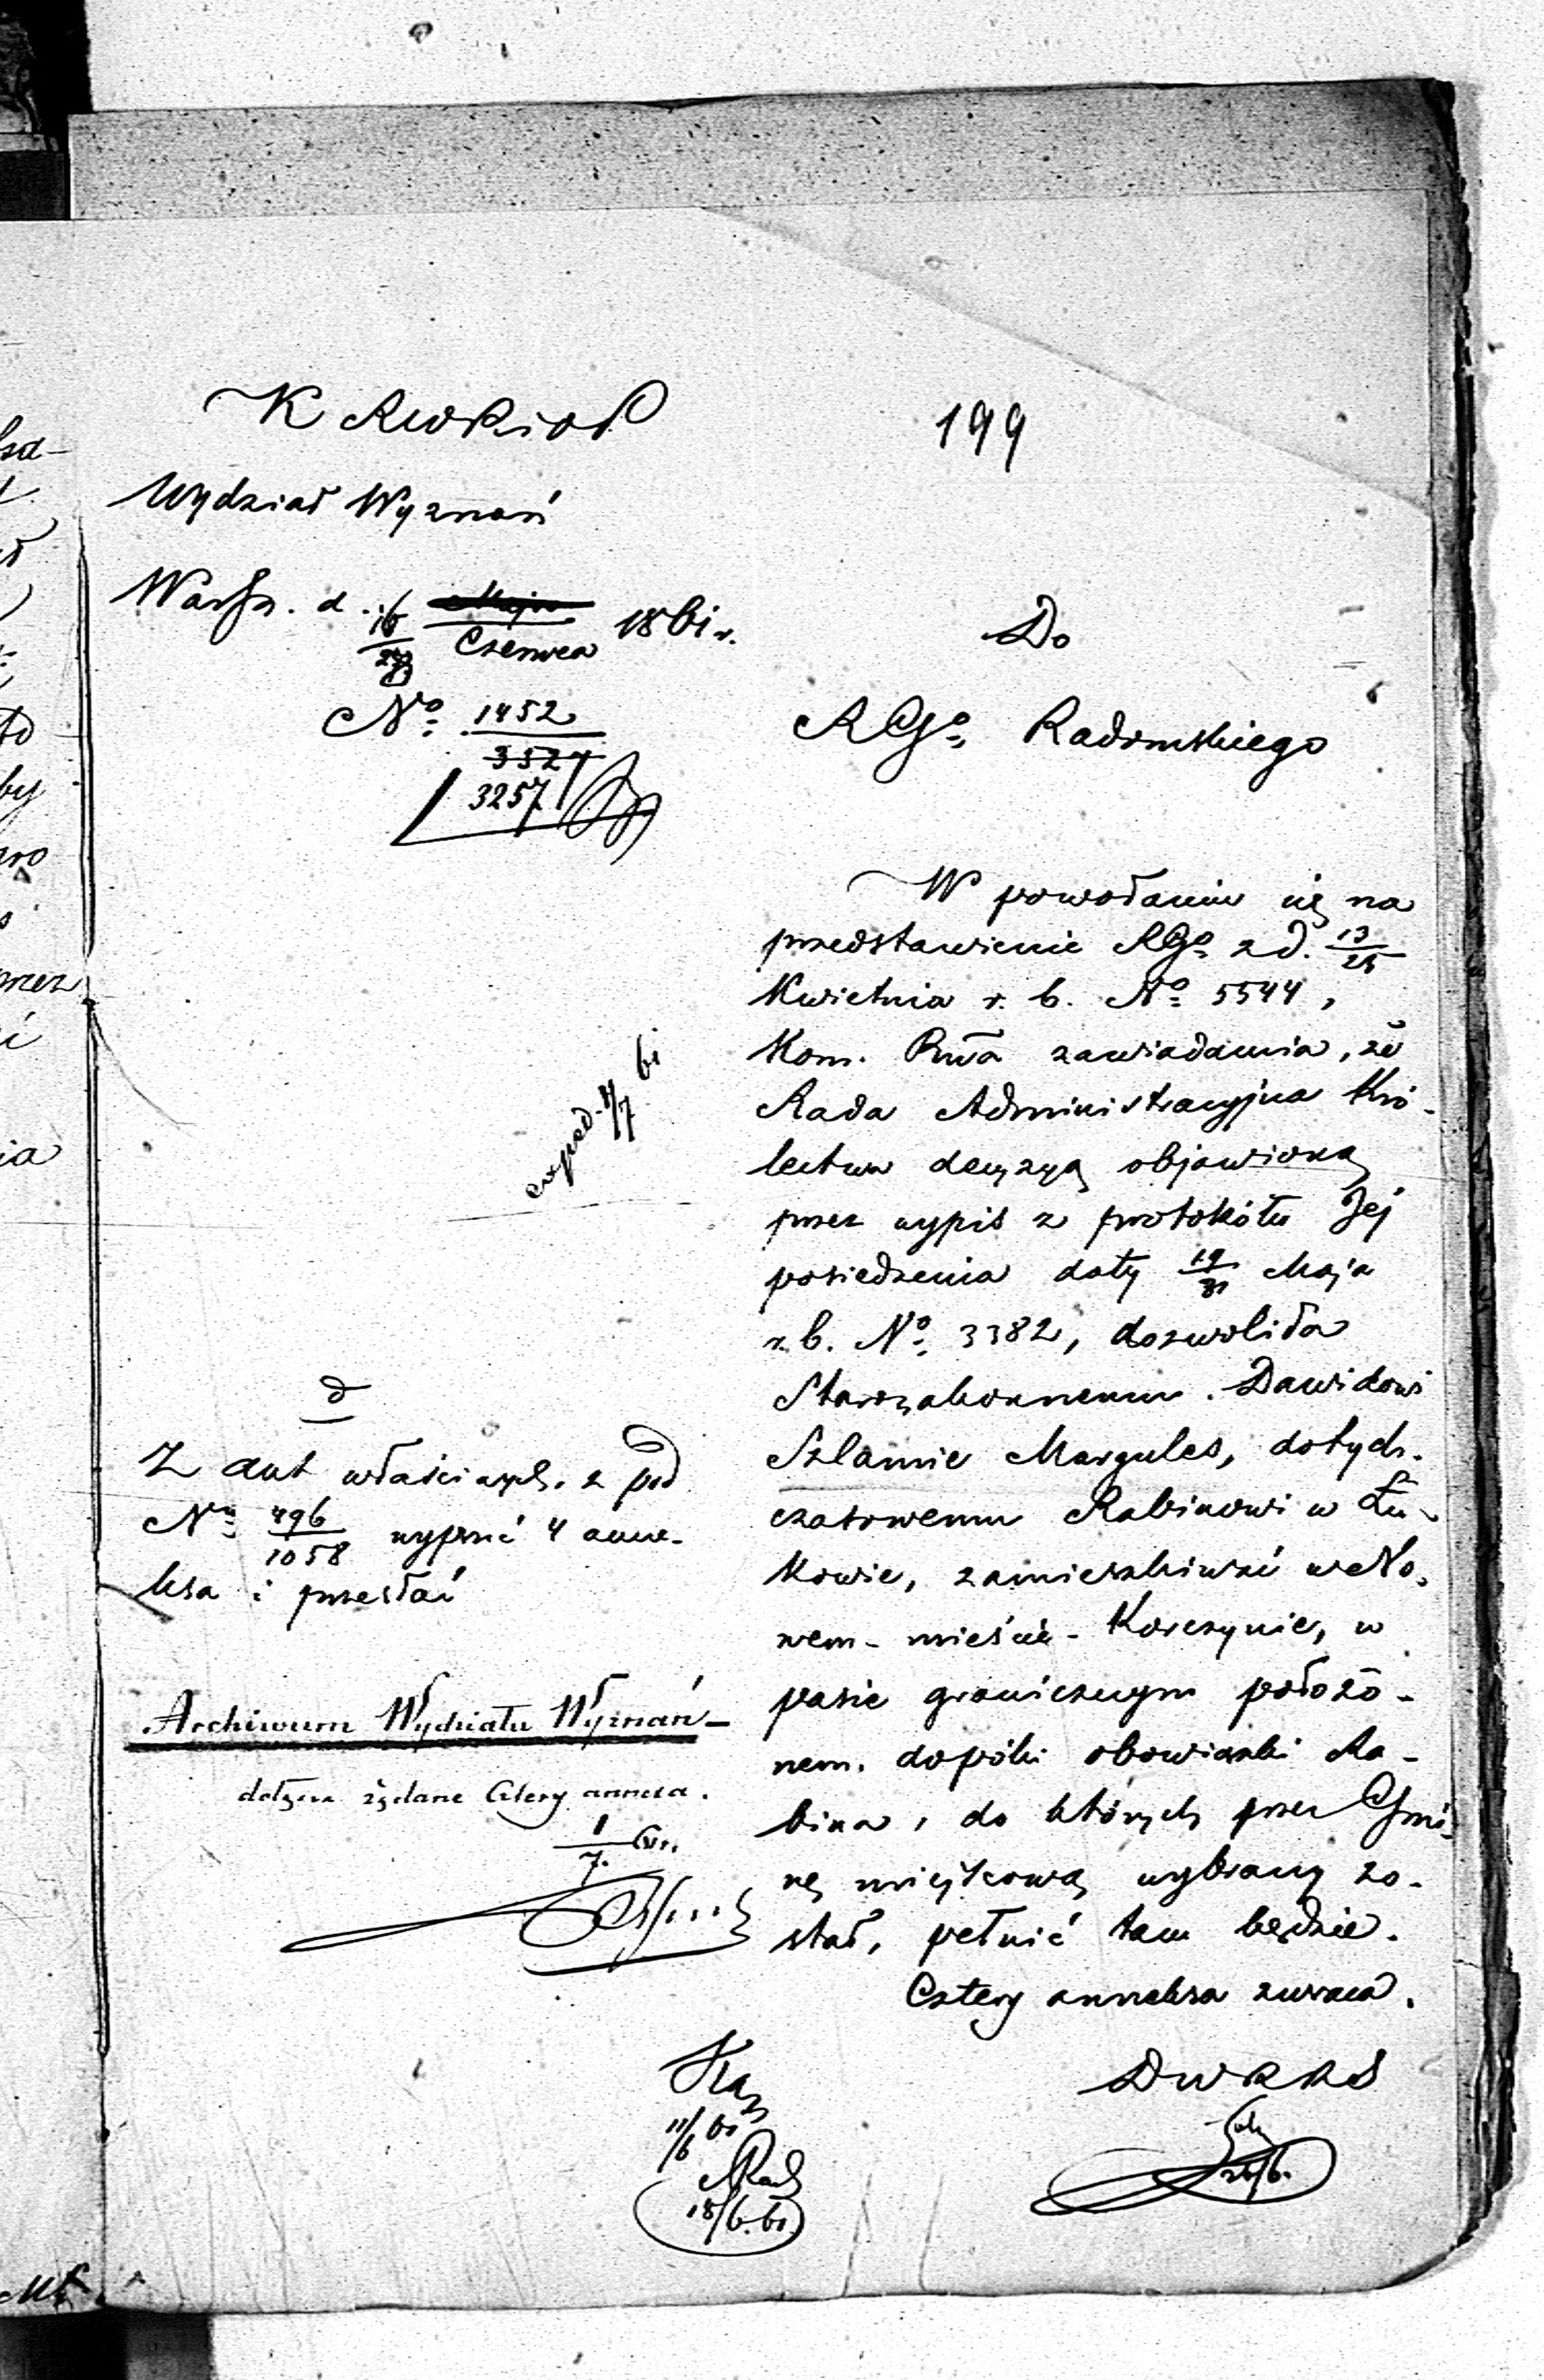 199
K RWRiOP
Wydział Wyznań
Warsz. d. 16 Maja 1861 r.
Czerwca
No. 1452
3527
3257
Do
RGo. Radomskiego
W powołaniu się na
przedstawienie RGo z d. 13/25
Kwietnia r. b. No. 5544,
Kom. Rwa zawiadamia, że
Rada Administracyjna Kró-
lestwa decyzyą objawioną
przez wypis z protokółu Jej
posiedzenia daty 19/31 Maja
r. b. No. 3382, dozwoliła
Starozakonnemu Dawidowi
Szlamie Margules, dotych-
czasowemu Rabinowi w Łu-
kowie, zamieszkiwać w No-
wem-mieście-Korczynie, w
pasie granicznym położo-
nem, dopóki obowiązki Ra-
bina, do których przez Gmi-
nę miejscową wybrany zo-
stał, pełnić tam będzie.
Cztery annexa zwraca.
DWRRS
26/6.
exped. 4/7 61
d
Z akt właściwych z pod
No 496/1058 wyprzeć 4 anne-
ksa i przesłać
Archiwum Wydziału Wyznań
dołącza żądane cztery annexa.
1/7.
11/6 61
18/6. 61.